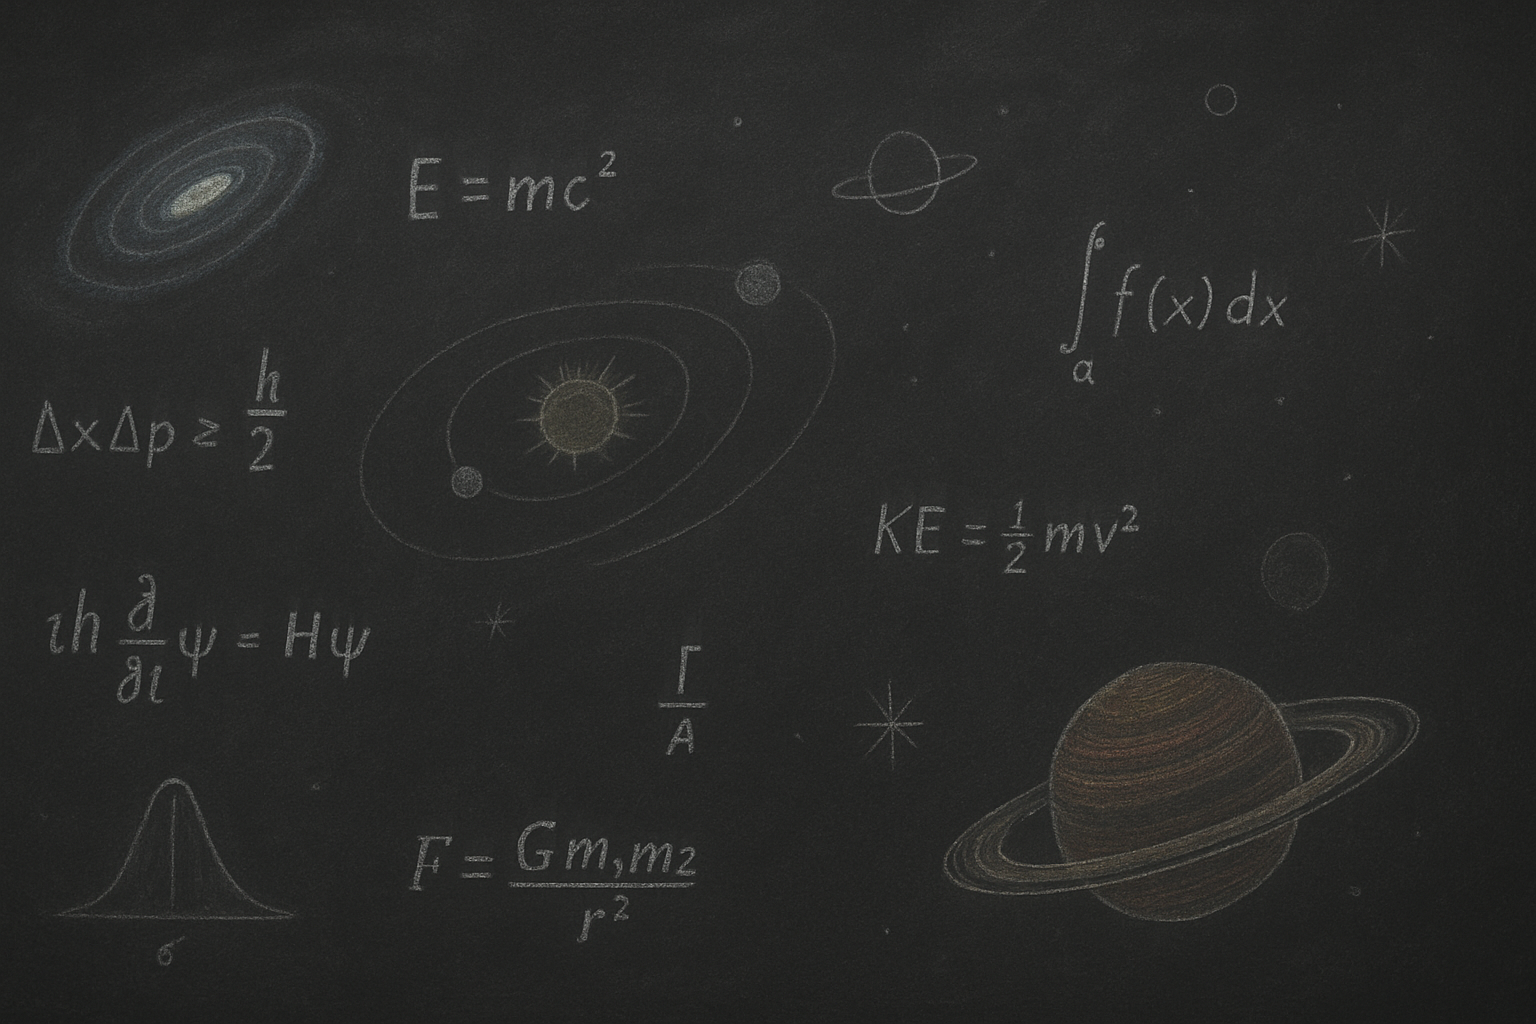 E = mc²
∫ₐ f(x) dx
ΔxΔp ≥ h/2
KE = 1/2 mv²
ıh ∂/∂ι ψ = Hψ
Γ/A
F = Gm₁m₂/r²
σ